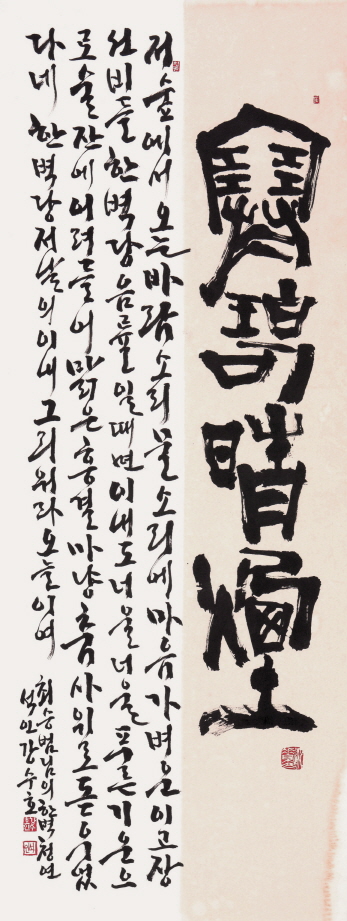 寒碧晴煙
저 숲에서 오는 바람소리 물소리에 마음 가벼운 이 고장
선비들 한벽당 음률 일 때면 이내도 너울너울 푸른 기운으
로 술잔에 어려들어 맑은 흥결 마냥 춤사위로 돋우었
다네 한벽당 저 날의 이내 그리워라 오늘이여
최승범님의 한벽청연
석인 강수호